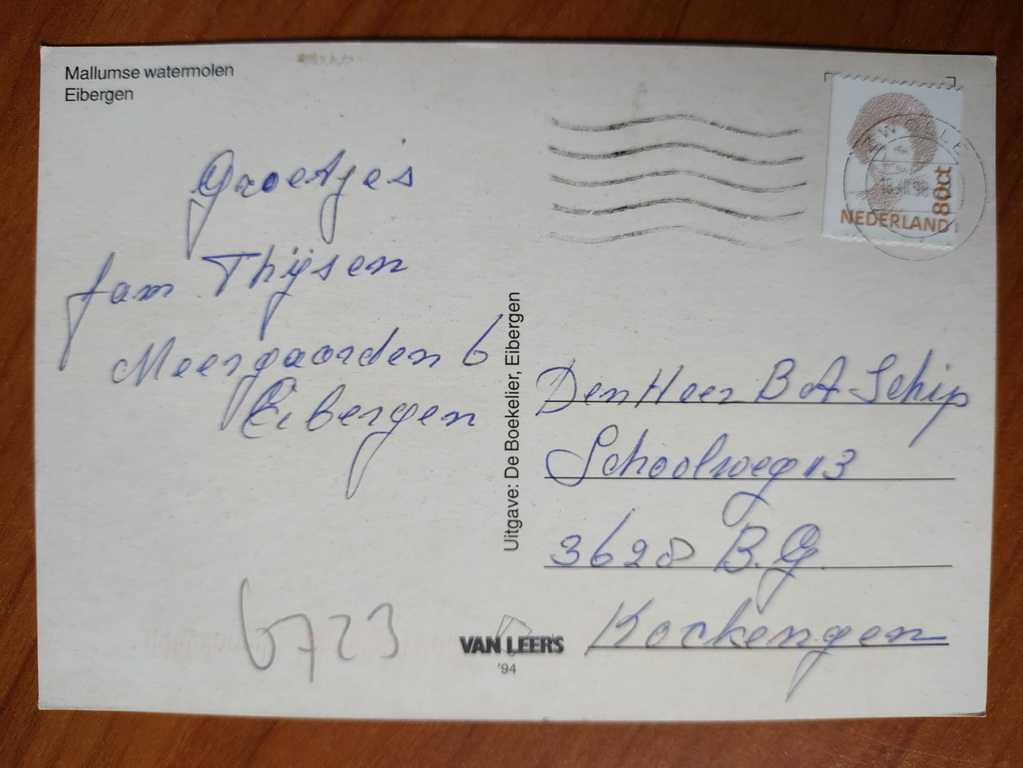 Mallumse watermolen
Eibergen
Groetjes
fam Thijsen
Meergaarden 6
Eibergen
6723
Uitgave: De Boekelier, Eibergen
VAN LEER'S
'94
NEDERLAND
80ct
Den Heer B A Schip
Schoolweg 13
3628 B.G.
Kockengen